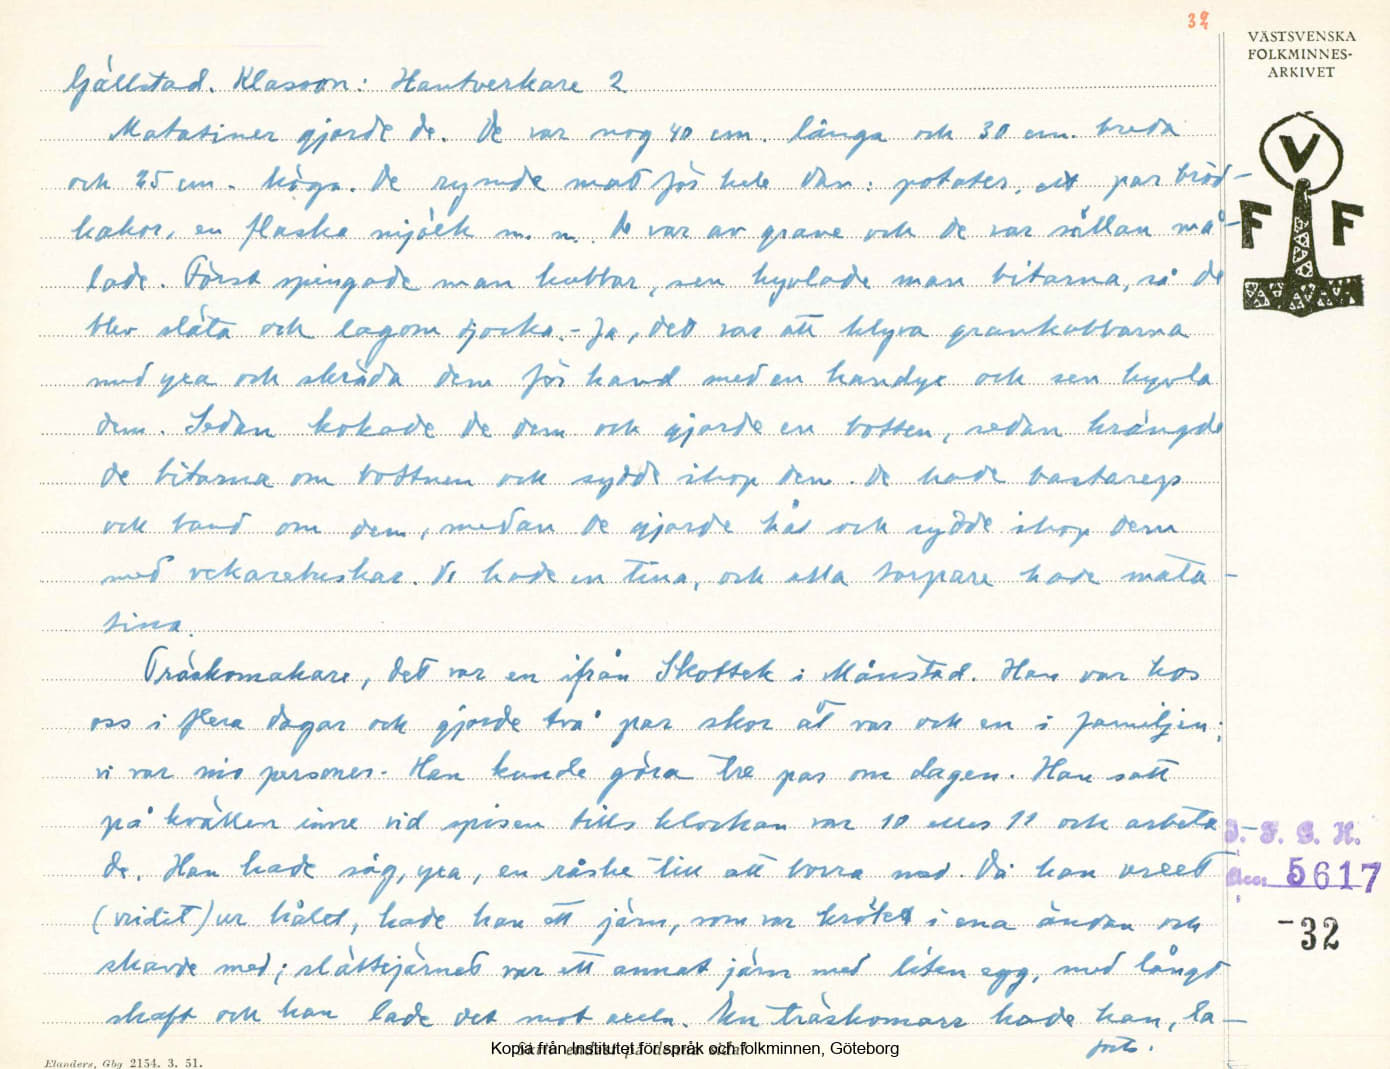 32
VÄSTSVENSKA
FOLKMINNES-
ARKIVET
V
F F
Gällstad. Klasson: Hantverkare 2
Matatiner gjorde de. De var nog 40 cm. långa och 30 cm. breda
och 25 cm. höga. De rymde mat för hele dan: potates, ett par bröd-
kakor, en flaska mjölk m. m. De var av grane och de var sällan må-
lade. Först spingade man kubbar, sen hyvlade man bitarna, så de
blev släta och lagom tjocka. - Ja, det var att klyva grankubbarna
med yxa och skräda dem för hand med en handyx och sen hyvla
dem. Sedan kokade de dem och gjorde en botten, sedan krängde
de bitarna om bottnen och sydde ihop den. De hade bastarep
och band om dem, medan de gjorde hål och sydde ihop dem
med vekarebuskar. Vi hade en tina, och alla torpare hade mata-
tina.
Träskomakare, det var en ifrån Skottek i Månstad. Han var hos
oss i flera dagar och gjorde två par skor åt var och en i familjen;
vi var nio personer. Han kunde göra tre par om dagen. Han satt
på kvällen inne vid spisen tills klockan var 10 elles 11 och arbeta-
de. Han hade såg, yxa, en råske till att borra med. Då han vreet
(vridit) ur hålet, hade han ett järn, som var krökt i ena ändan och
skavde med; slättjärnet var ett annat järn med liten egg, med långt
skaft och han lade det mot axeln. En träskomarr hade han, la-
forts.
I.-F. G. H.
5617
-32
Kopia från Institutet för språk och folkminnen, Göteborg
Elanders, Gbg 2154. 3. 51.